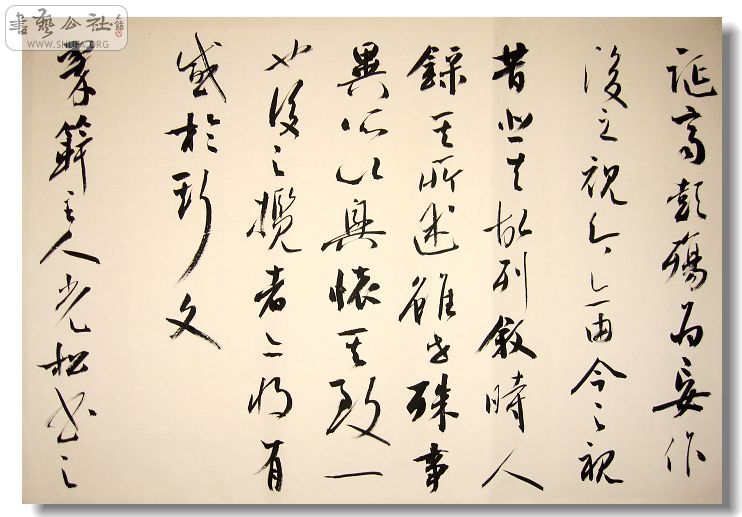 書藝公社
WWW.SHUFA.ORG
誕齊彭殤為妄作
後之視今亦由今之視
昔悲夫故列敘時人
錄其所述雖世殊事
異所以興懷其致一
也後之攬者亦將有
感於斯文
主人光松書之